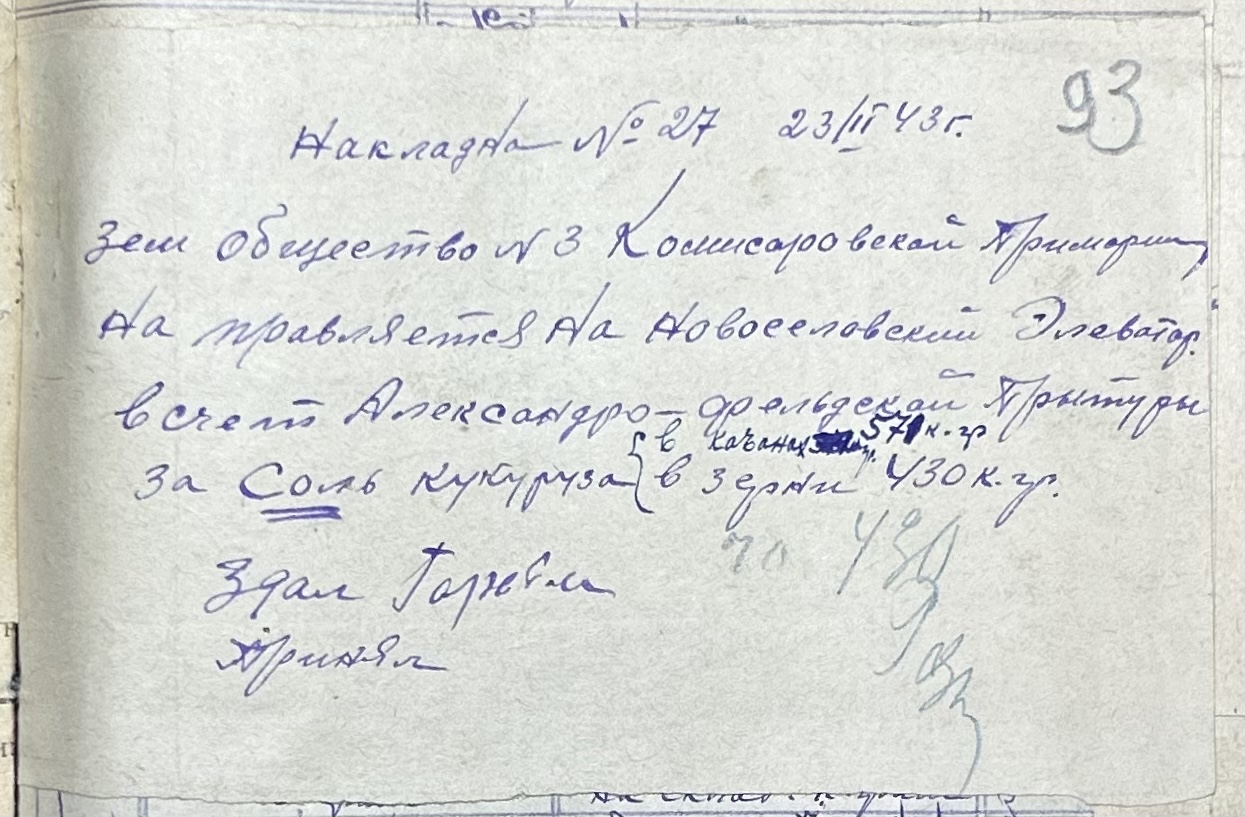 93
Накладна № 27 23/II 43 г.
Зем общество N 3 Комисаровской Примарии
На правляется На Новоселовский Элеватор.
в счет Александро-фельдской Прытуры
за Соль кукуруза { в качанах 571 к.гр
в зерни 430 к.гр.
Здал
Принял
430